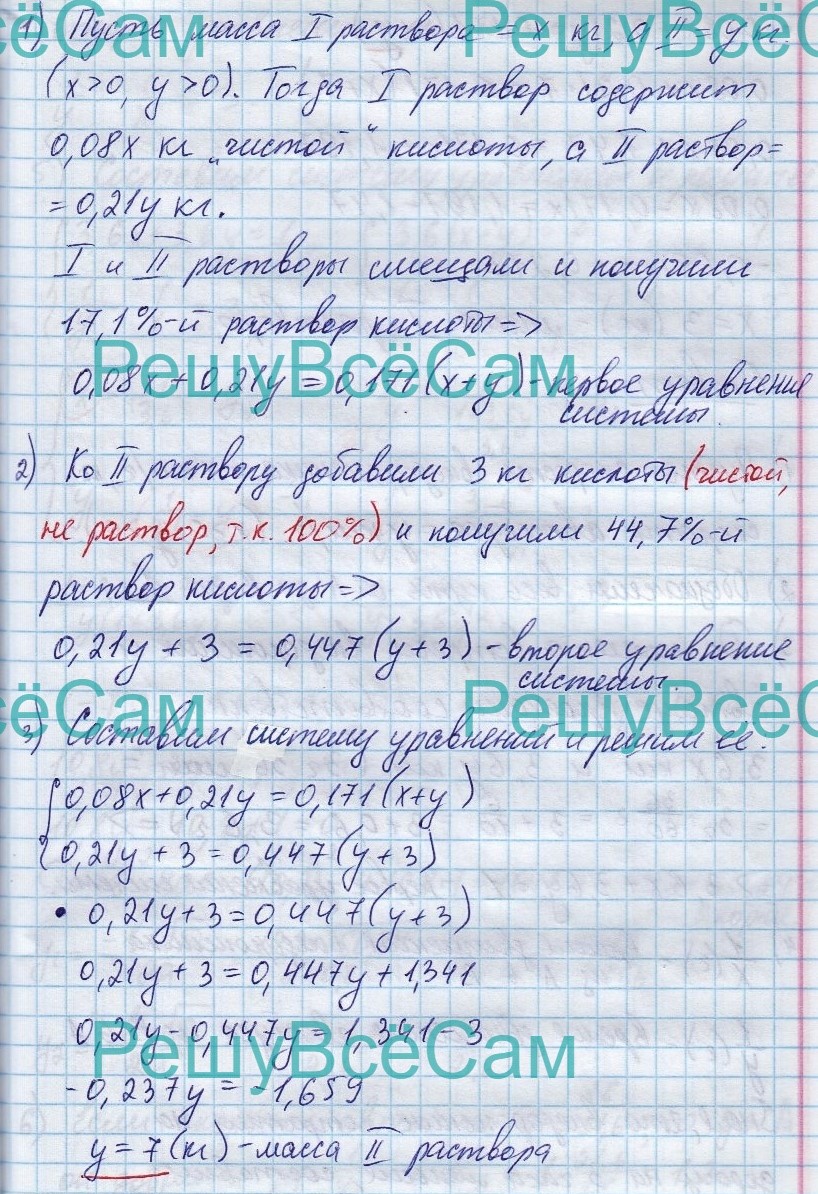 1) Пусть масса I раствора = x кг, а II = y кг.
(x>0, y>0). Тогда I раствор содержит
0,08x кг „чистой“ кислоты, а II раствор =
= 0,21y кг.
I и II растворы смешали и получили
17,1%-й раствор кислоты =>
0,08x + 0,21y = 0,171(x+y) - первое уравнение
системы.
2) Ко II раствору добавили 3 кг кислоты (чистой,
не раствор, т.к. 100%) и получили 44,7%-й
раствор кислоты =>
0,21y + 3 = 0,447(y+3) - второе уравнение
системы.
3) Составим систему уравнений и решим её.
{ 0,08x+0,21y = 0,171(x+y)
0,21y + 3 = 0,447(y+3)
• 0,21y+3 = 0,447(y+3)
0,21y + 3 = 0,447y + 1,341
0,21y - 0,447y = 1,341 - 3
-0,237y = -1,659
y = 7 (кг) - масса II раствора
РешуВсёСам
РешуВсёСам
РешуВсёСам
РешуВсёСам
РешуВсёСам
РешуВсёСам